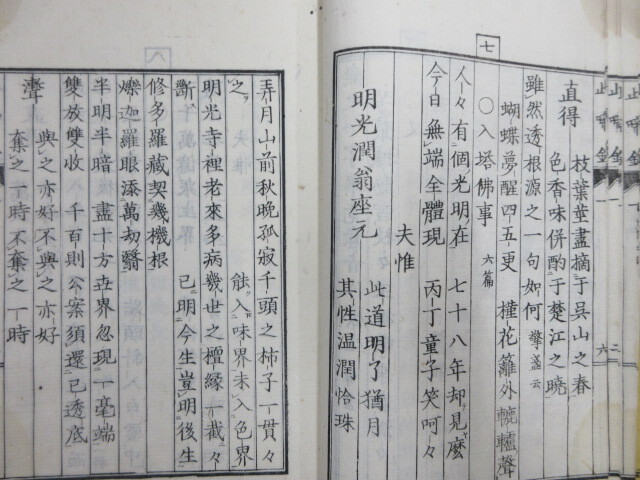 七
直得 枝葉華盡摘于呉山之春
色香味併酌于楚江之曉
雖然透根源之一句如何 擎盞云
蝴蝶夢醒四五更 槿花籬外轆轤聲
○入塔佛事 六篇
人々有個光明在 七十八年却見麼
今日無端全體現 丙丁童子笑呵々
明光潤翁座元
夫惟
此道明了猶月
其性温潤恰珠
八
弄月山前秋晩孤寂千頭之柿子一貫々
之 能入味界未入色界
明光寺裡老來多病幾世之檀縁一截々
斷 已明今生豈明後生
修多羅藏契幾機根
爍迦羅眼添萬劫翳
半明半暗 盡十方世界忽現一毫端
雙放雙收 千百則公案須還已透底
聻
與之亦好不與之亦好
奪之一時不奪之一時